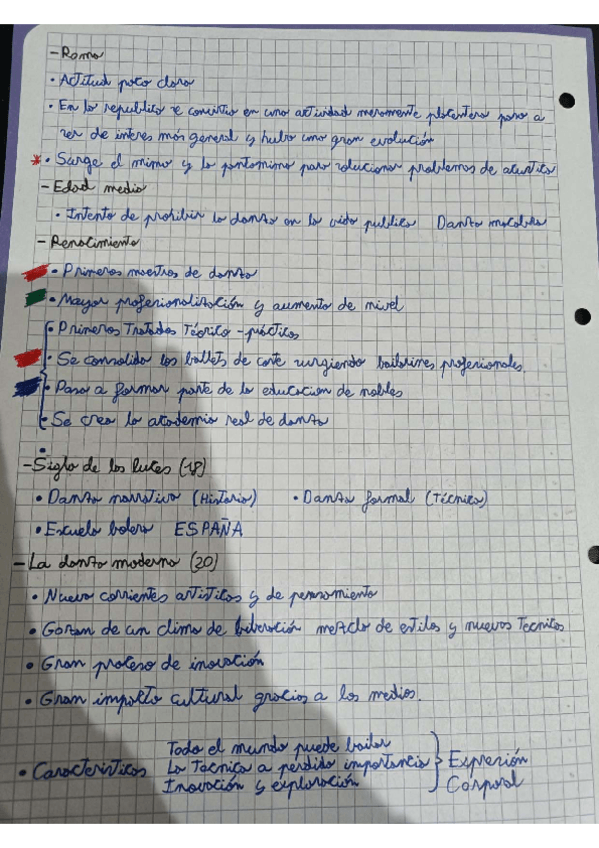 - Roma
• Actitud poco clara
• En la republica se convirtio en una actividad meramente placentera paso a
ser de interes más general y hubo una gran evolución
* • Surge el mimo y la pantomima para solucionar problemas de acustica
- Edad media
• Intento de prohibir la danza en la vida publica Danza macabra
- Renacimiento
• Primeros maestros de danza
• Mayor profesionalización y aumento de nivel
• Primeros Tratados Téorico - prácticos
• Se consolida los ballets de corte surgiendo bailarines profesionales
• Pasa a formar parte de la educacion de nobles
• Se crea la academia real de danza
•
- Siglo de las luces (18)
• Danza narrativa (Historia) • Danza formal (Técnica)
• Escuela bolera ESPAÑA
- La danza moderna (20)
• Nueva corrientes artisticas y de pensamiento
• Gozan de un clima de liberación mezcla de estilos y nuevas Tecnicas
• Gran proceso de inovación
• Gran impacto cultural gracias a los medios.
• Caracteristicas
Todo el mundo puede bailar
La Tecnica a perdido importancia
Inovación y exploración
Expresión
Corporal